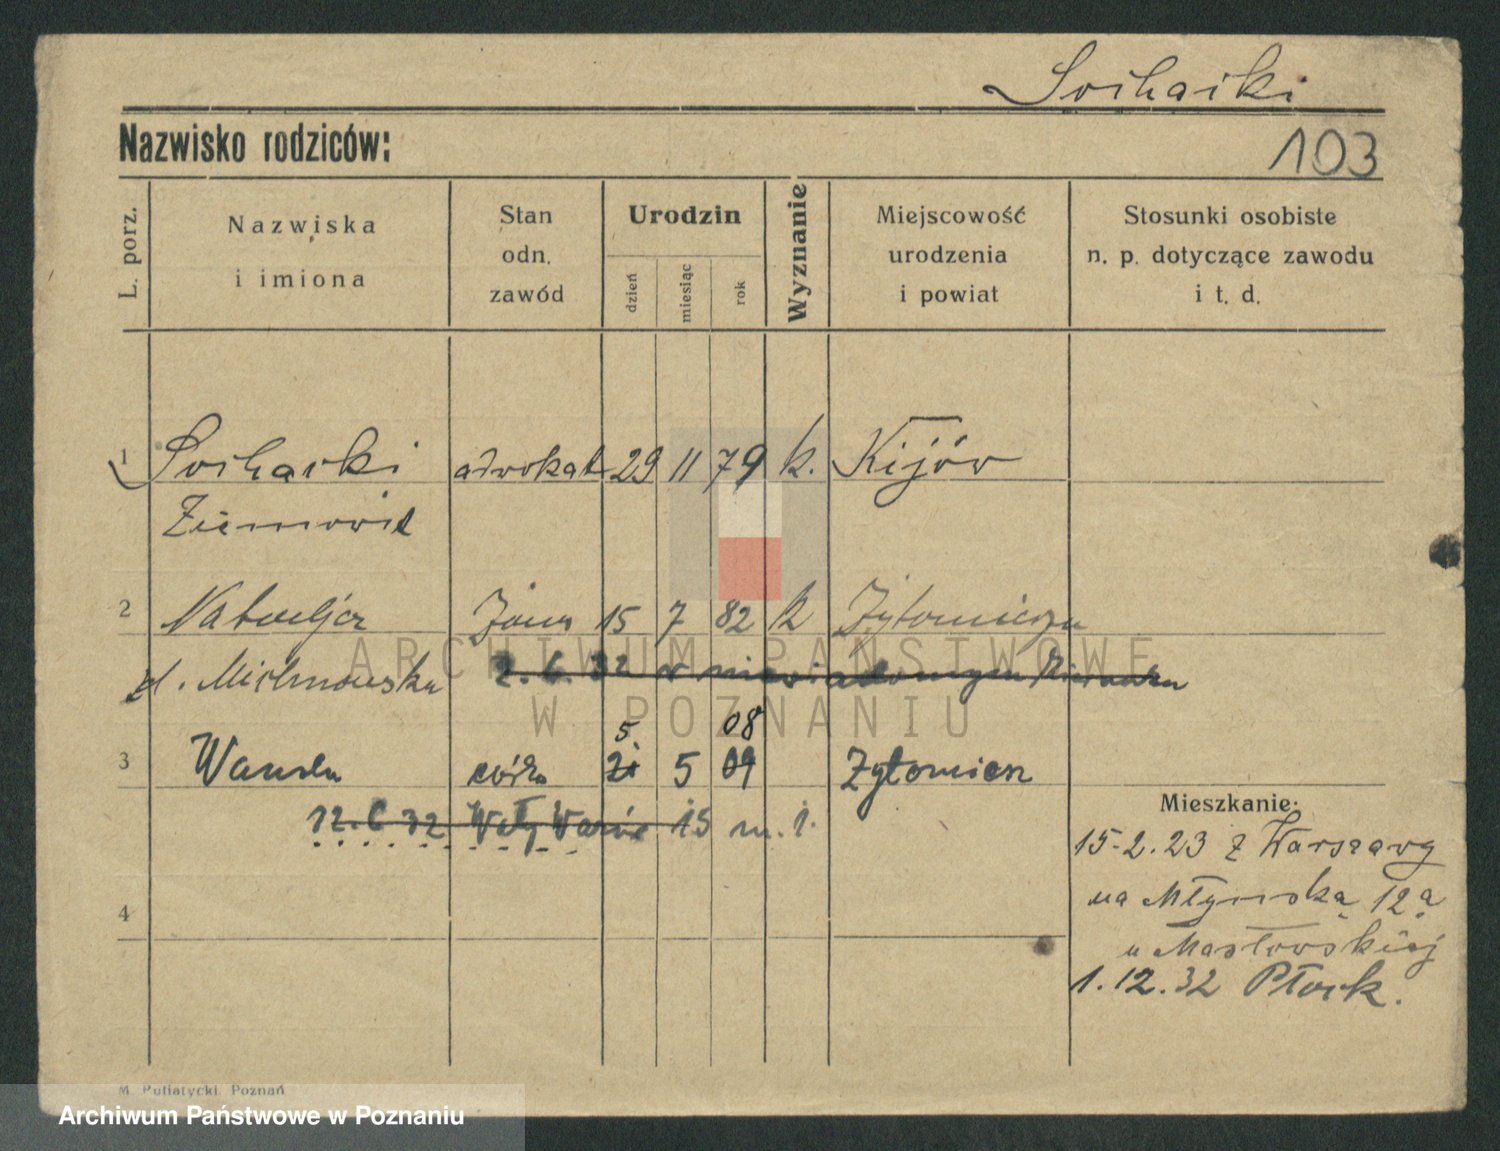 Sochacki
Nazwisko rodziców:
103
L. porz.
Nazwiska
i imiona
Stan
odn.
zawód
Urodzin
dzień
miesiąc
rok
Wyznanie
Miejscowość
urodzenia
i powiat
Stosunki osobiste
n. p. dotyczące zawodu
i t. d.
1 Sochacki adwokat 29 11 79 k. Kijów
Ziemowit
2 Natalja żona 15 7 82 k Żytomierzu
ARCHIWUM PAŃSTWOWE
d. Michnowska 2.6.32 w niewiadomym kierunku
W POZNANIU
5. 08
3 Wanda córka 21 5 09 Żytomierz
Mieszkanie:
12.6.32 Wały Warn 15 m. 1.
15.2.23 z Warszawy
na Młyńską 12a
4
u Masłowskiej
1.12.32 Płock.
M. Putiatycki, Poznań
Archiwum Państwowe w Poznaniu